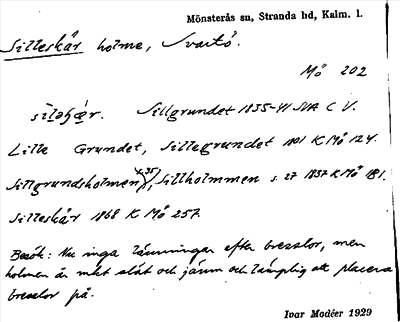 Mönsterås sn, Stranda hd, Kalm. l.
Silleskär holme, Svartö.
Mö 202
Sillgrundet 1835-41 SVA C V.
Lille Grundet, Sillegrundet 1801 K Mö 124.
Sillgrundsholmen, Sillholmmen s. 27 1837 K Mö 181.
Silleskär 1868 K Mö 257.
Besök: Nu inga lämningar efter bresslor, men
holmen är mkt slät och jämn och lämplig att placera
bresslor på.
Ivar Modéer 1929